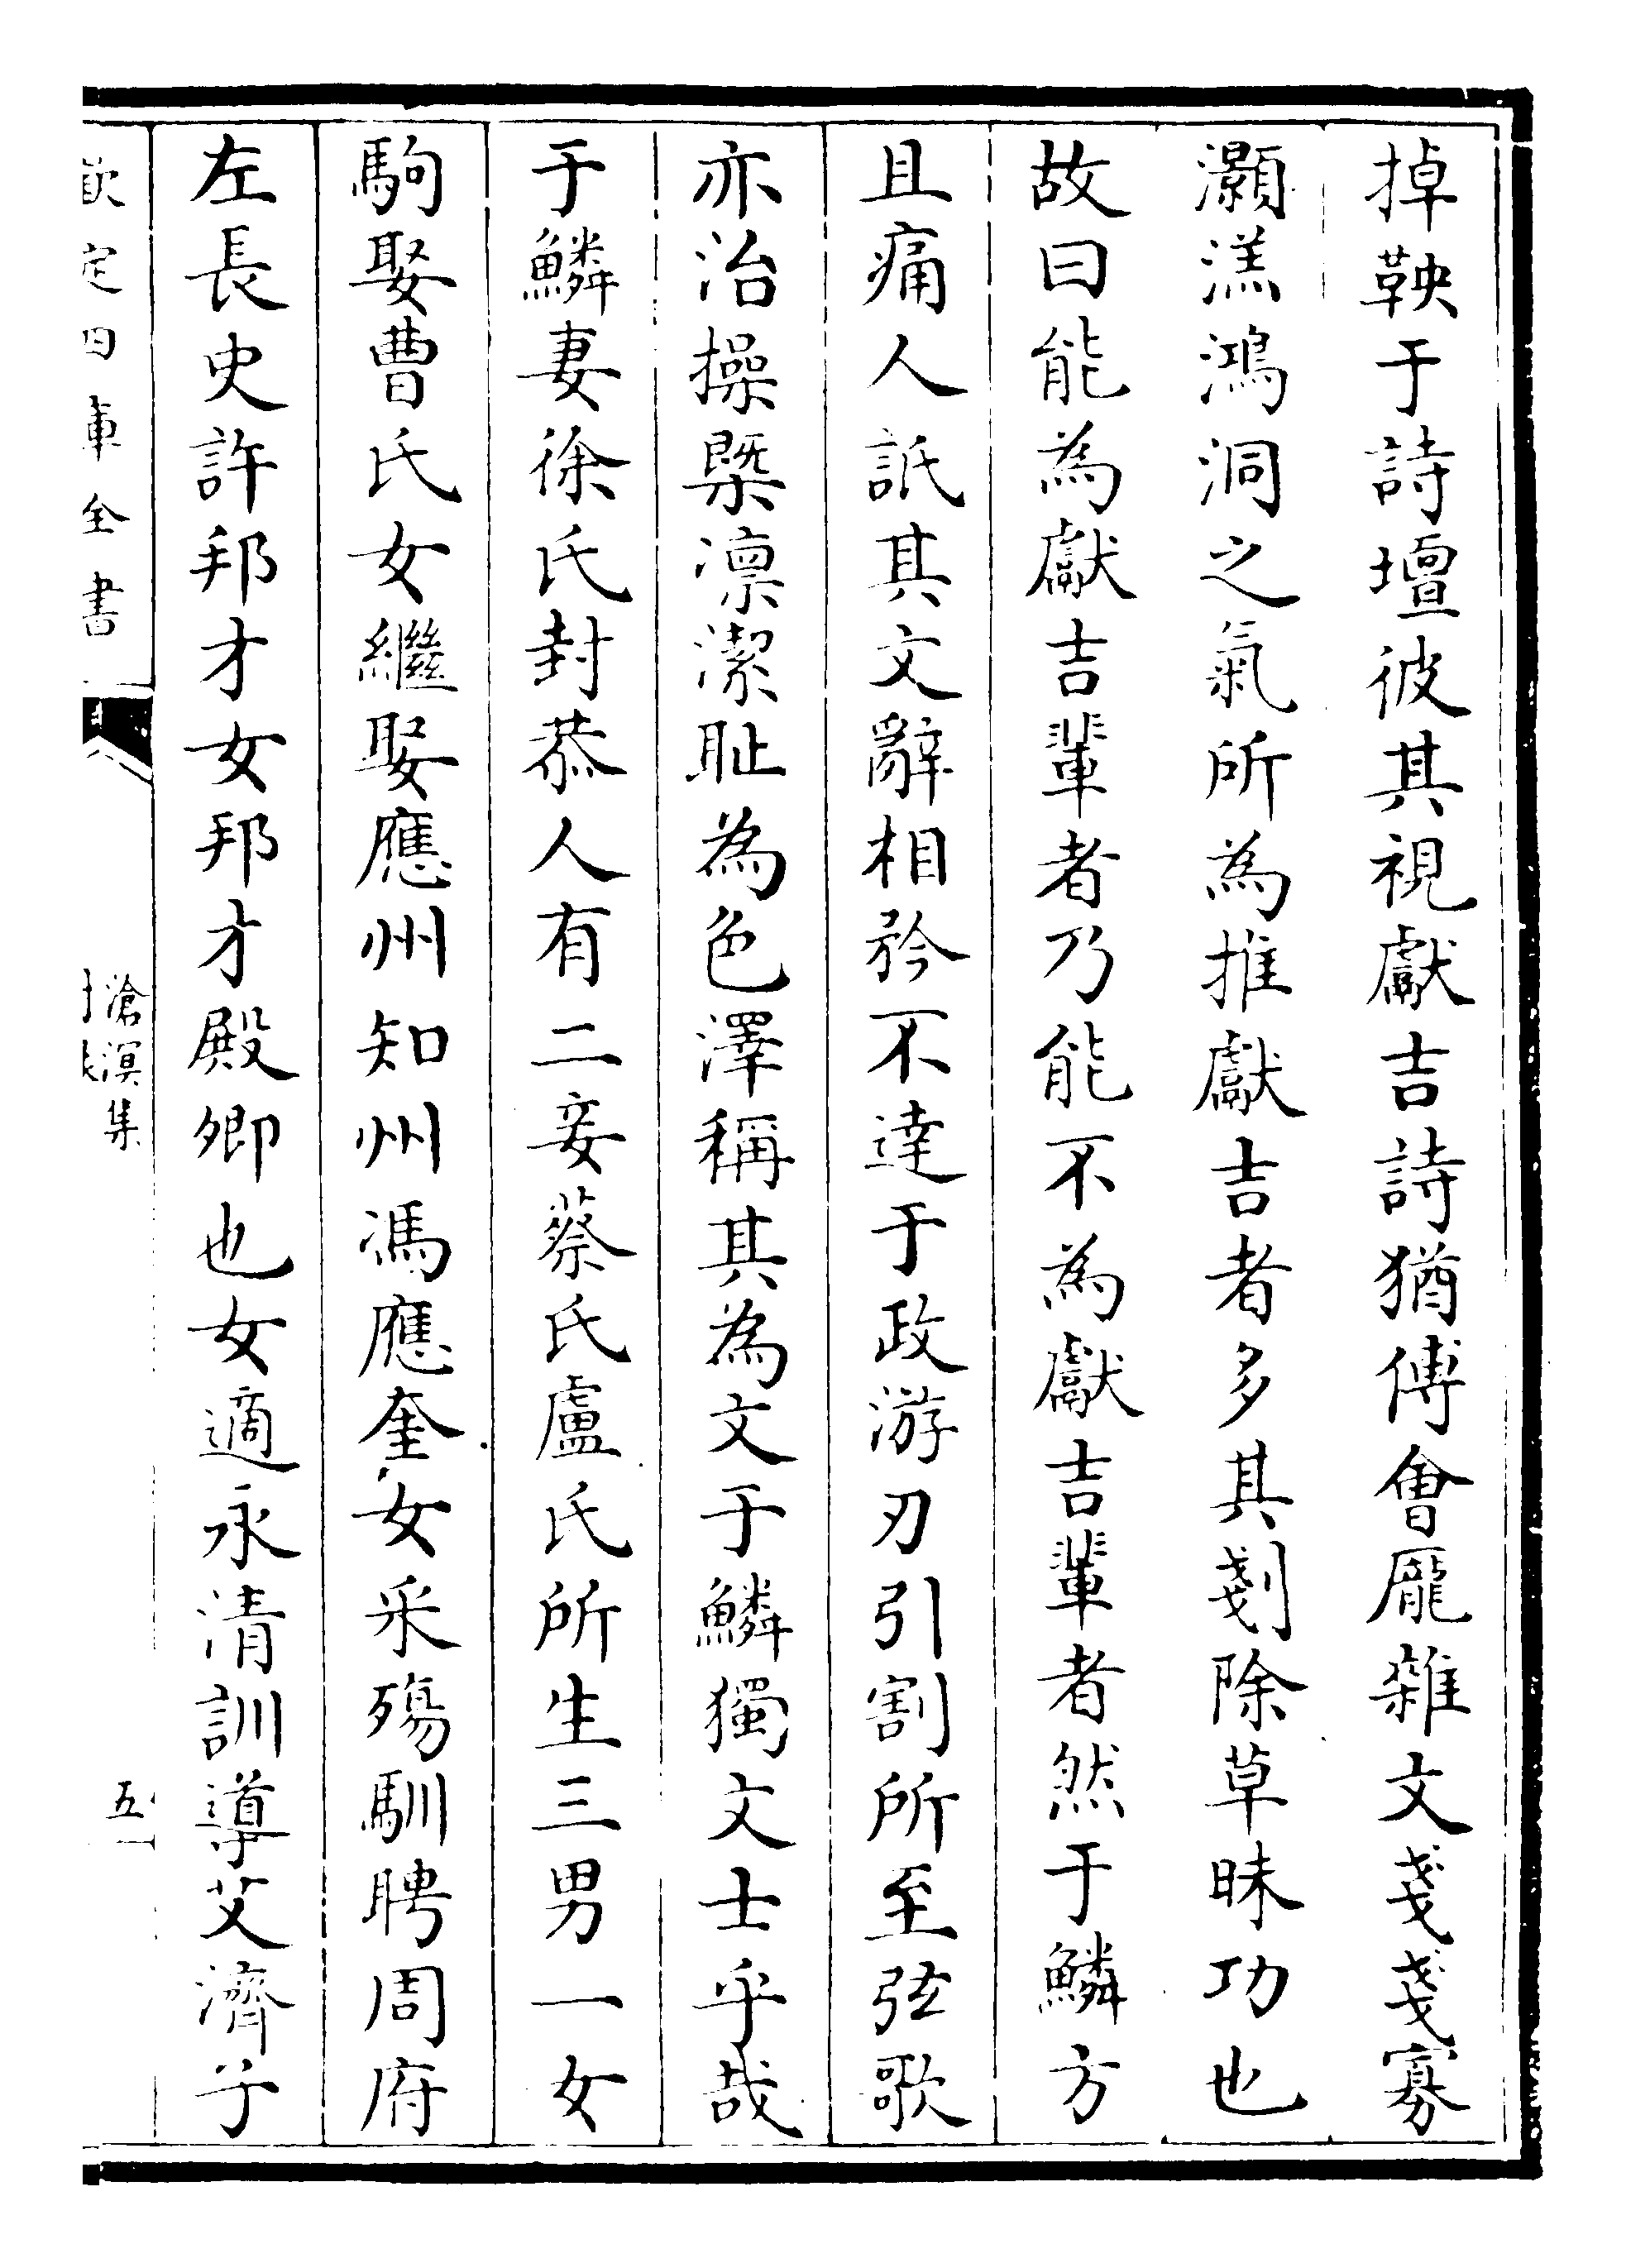 掉鞅于詩壇彼其視獻吉詩猶傅會龎雜文戔戔寡
灝溔鴻洞之氣所為推獻吉者多其剗除草昧功也
故曰能為獻吉輩者乃能不為獻吉輩者然于鱗方
且痛人詆其文辭相矜不逹于政游刃引割所至弦歌
亦治操槩凛潔耻為色澤稱其為文于鱗獨文士乎哉
于鱗妻徐氏封恭人有二妾蔡氏盧氏所生三男一女
駒娶曹氏女繼娶應州知州馮應奎女采殤馴聘周府
左長史許邦才女邦才殿卿也女適永清訓導艾濟子
欽定四庫全書
滄溟集
五